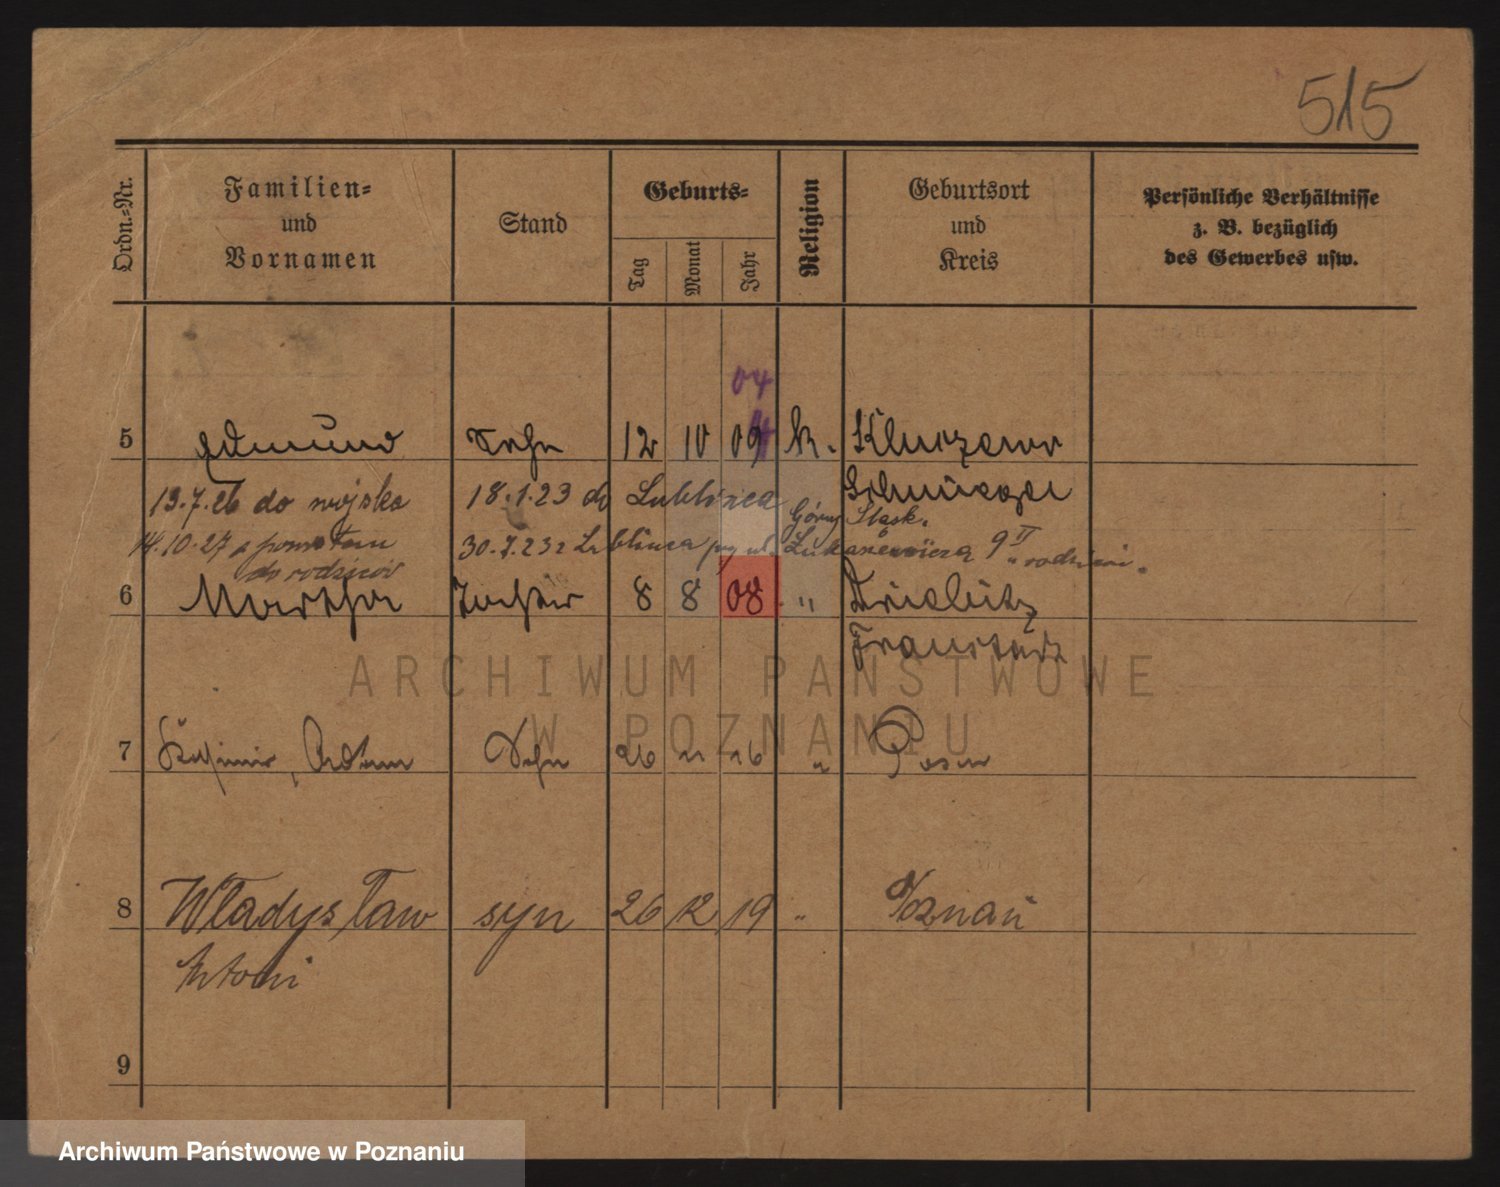 515
Ordn.-Nr.
Familien-
und
Vornamen
Stand
Geburts-
Tag
Monat
Jahr
Religion
Geburtsort
und
Kreis
Persönliche Verhältnisse
z. B. bezüglich
des Gewerbes usw.
04
5 Edmund Sohn 12 10 09 k.
13.7.26 do wojska 18.1.23 do Lublińca Górny Śląsk.
14.10.27 z powrotem 30.7.23 z Lublińca
do rodziców
6 Martha Tochter 8 8 08 "
ARCHIWUM PAŃSTWOWE
W POZNANIU
7 Kasimir, Adam Sohn 26 "  Posen
8 Władysław syn 26 12 19 " Poznań
Antoni
9
Archiwum Państwowe w Poznaniu